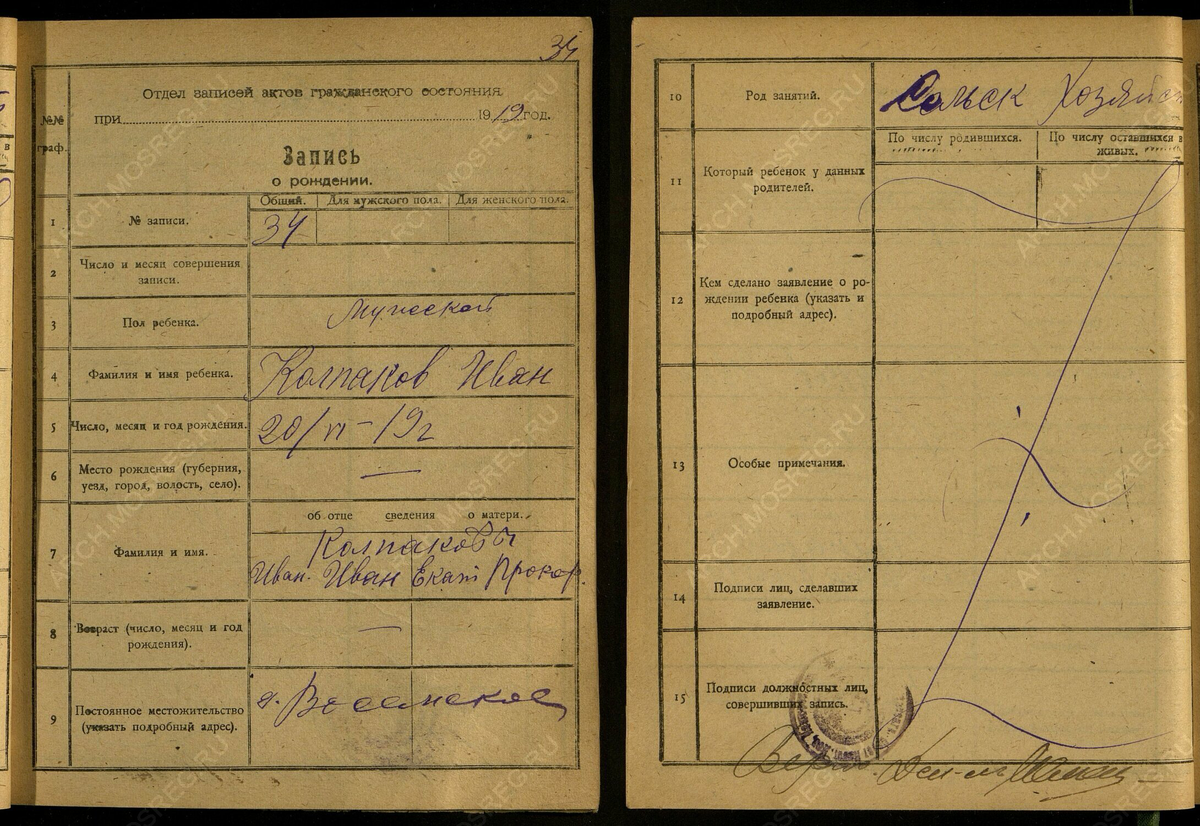 34
Отдел записей актов гражданского состояния
№№ граф.
при 1919 год.
Запись
о рождении.
Общий. Для мужского пола. Для женского пола.
1 № записи. 34
2 Число и месяц совершения
записи.
3 Пол ребенка. Мужской
4 Фамилия и имя ребенка. Колпаков Иван
5 Число, месяц и год рождения. 20/VI – 19г
6 Место рождения (губерния,
уезд, город, волость, село). —
об отце сведения о матери.
7 Фамилия и имя. Колпаковы
Иван. Иван Екат Прокор.
8 Возраст (число, месяц и год
рождения). —
9 Постоянное местожительство
(указать подробный адрес). д.
10 Род занятий. Сельск Хозяйс
По числу родившихся. По числу оставшихся в
живых.
11 Который ребенок у данных
родителей.
12 Кем сделано заявление о ро-
ждении ребенка (указать и
подробный адрес).
13 Особые примечания.
14 Подписи лиц, сделавших
заявление.
15 Подписи должностных лиц,
совершивших запись.
ARCH.MOSREG.RU